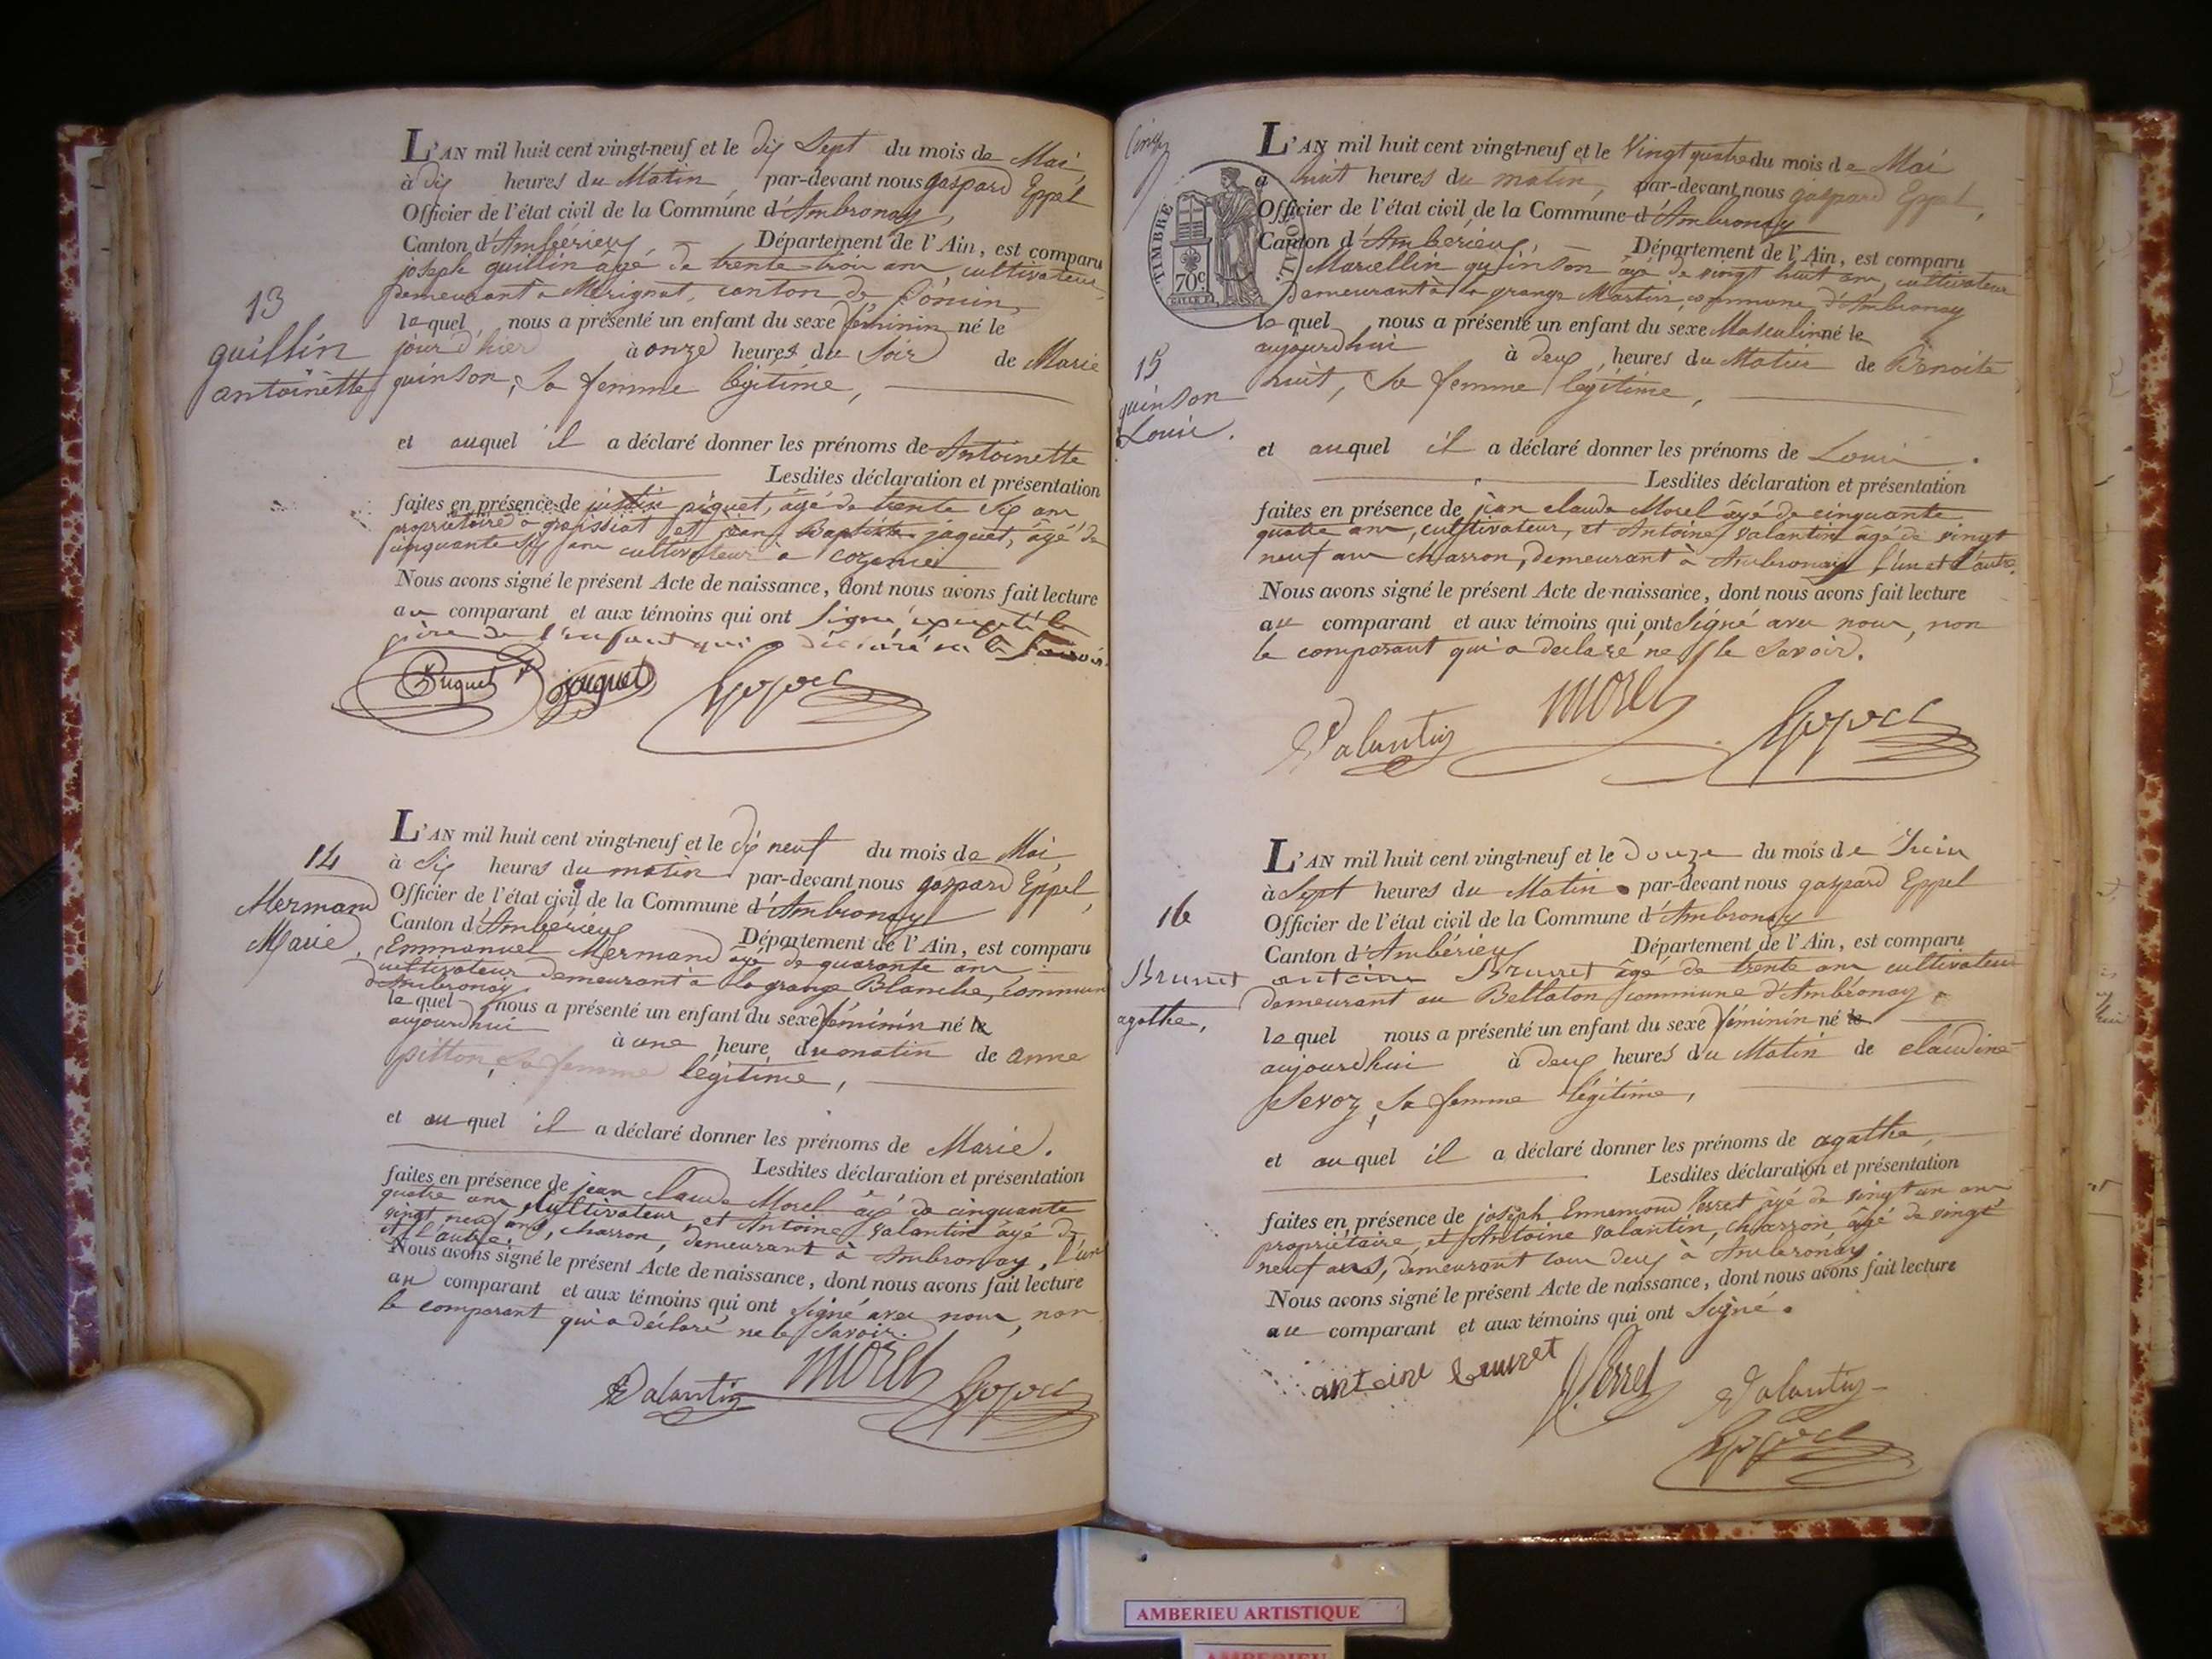 L'AN mil huit cent vingt-neuf et le dix Sept du mois de Mai,
à dix heures du Matin, par-devant nous gaspard Eppel
Officier de l'état civil de la Commune d'Ambronay,
Canton d'Ambérieux, Département de l'Ain, est comparu
joseph guillin âgé de trente trois ans cultivateur,
demeurant à Mérignat, canton de Poncin,
lequel nous a présenté un enfant du sexe féminin né le
jour d'hier à onze heures du Soir de Marie
quinson, Sa femme légitime,
13
guillin
antoinette
et auquel il a déclaré donner les prénoms de Antoinette
Lesdites déclaration et présentation
faites en présence de justin piquet, âgé de trente Six ans
propriétaire à et jean Baptiste jaquet, âgé de
cinquante Six ans cultivateur à
Nous avons signé le présent Acte de naissance, dont nous avons fait lecture
au comparant et aux témoins qui ont Signé, excepté le
père de l'enfant qui a déclaré ne le Savoir.
Piquet jaquet Eppel
14
Mermand
Marie.
L'AN mil huit cent vingt-neuf et le dix neuf du mois de Mai
à Six heures du matin par-devant nous gaspard Eppel,
Officier de l'état civil de la Commune d'Ambronay
Canton d'Ambérieux Département de l'Ain, est comparu
Emmanuel Mermand âgé de quarante ans,
cultivateur demeurant à la grange Blanche, commune
d'Ambronay
lequel nous a présenté un enfant du sexe féminin né le
aujourd'hui à une heure du matin de anne
pitton, Sa femme légitime,
et auquel il a déclaré donner les prénoms de Marie.
Lesdites déclaration et présentation
faites en présence de jean claude Morel âgé de cinquante
quatre ans, Cultivateur, et Antoine valantin âgé de
vingt neuf ans, charron, demeurant à Ambronay, l'un
et l'autre.
Nous avons signé le présent Acte de naissance, dont nous avons fait lecture
au comparant et aux témoins qui ont Signé avec nous, non
le comparant qui a déclaré ne le Savoir.
Valantin MOREL Eppel
TIMBRE ROYAL
70c
L'AN mil huit cent vingt-neuf et le Vingt quatre du mois de Mai
à huit heures du matin, par-devant nous gaspard Eppel,
Officier de l'état civil de la Commune d'Ambronay
Canton d'Ambérieux, Département de l'Ain, est comparu
Marcellin quinson âgé de vingt huit ans, cultivateur
Demeurant à la grange Martin, commune d'Ambronay
lequel nous a présenté un enfant du sexe Masculin né le
aujourdhui à deux heures du Matin de Benoite
huit, Sa femme légitime,
15
quinson
Louis.
et auquel il a déclaré donner les prénoms de Louis.
Lesdites déclaration et présentation
faites en présence de jean claude Morel âgé de cinquante
quatre ans, cultivateur, et Antoine valantin âgé de vingt
neuf ans charron, demeurant à Ambronay l'un et l'autre.
Nous avons signé le présent Acte de naissance, dont nous avons fait lecture
au comparant et aux témoins qui ont Signé avec nous, non
le comparant qui a déclaré ne le Savoir.
Valantin MOREL Eppel
16
Brunet
agathe,
L'AN mil huit cent vingt-neuf et le Douze du mois de Juin
à Sept heures du Matin par-devant nous gaspard Eppel
Officier de l'état civil de la Commune d'Ambronay
Canton d'Ambérieux Département de l'Ain, est comparu
antoine Brunet âgé de trente ans cultivateur
demeurant au Bellaton commune d'Ambronay,
lequel nous a présenté un enfant du sexe féminin né le
aujourdhui à deux heures du Matin de claudine
Sevoz, Sa femme légitime,
et auquel il a déclaré donner les prénoms de agathe,
Lesdites déclaration et présentation
faites en présence de joseph Ennemond Perret âgé de vingt un ans
propriétaire, et Antoine valantin, charron âgé de vingt
neuf ans, demeurant tous deux à Ambronay.
Nous avons signé le présent Acte de naissance, dont nous avons fait lecture
au comparant et aux témoins qui ont Signé.
antoine brunet Perret Valantin
Eppel
AMBERIEU ARTISTIQUE
AMBERIEU